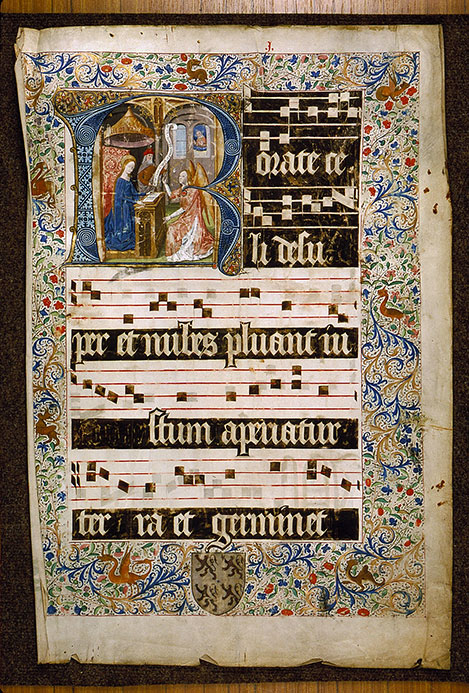 Rorate ce
li desu
per et nubes pluant iu
stum aperiatur
ter ra et germinet